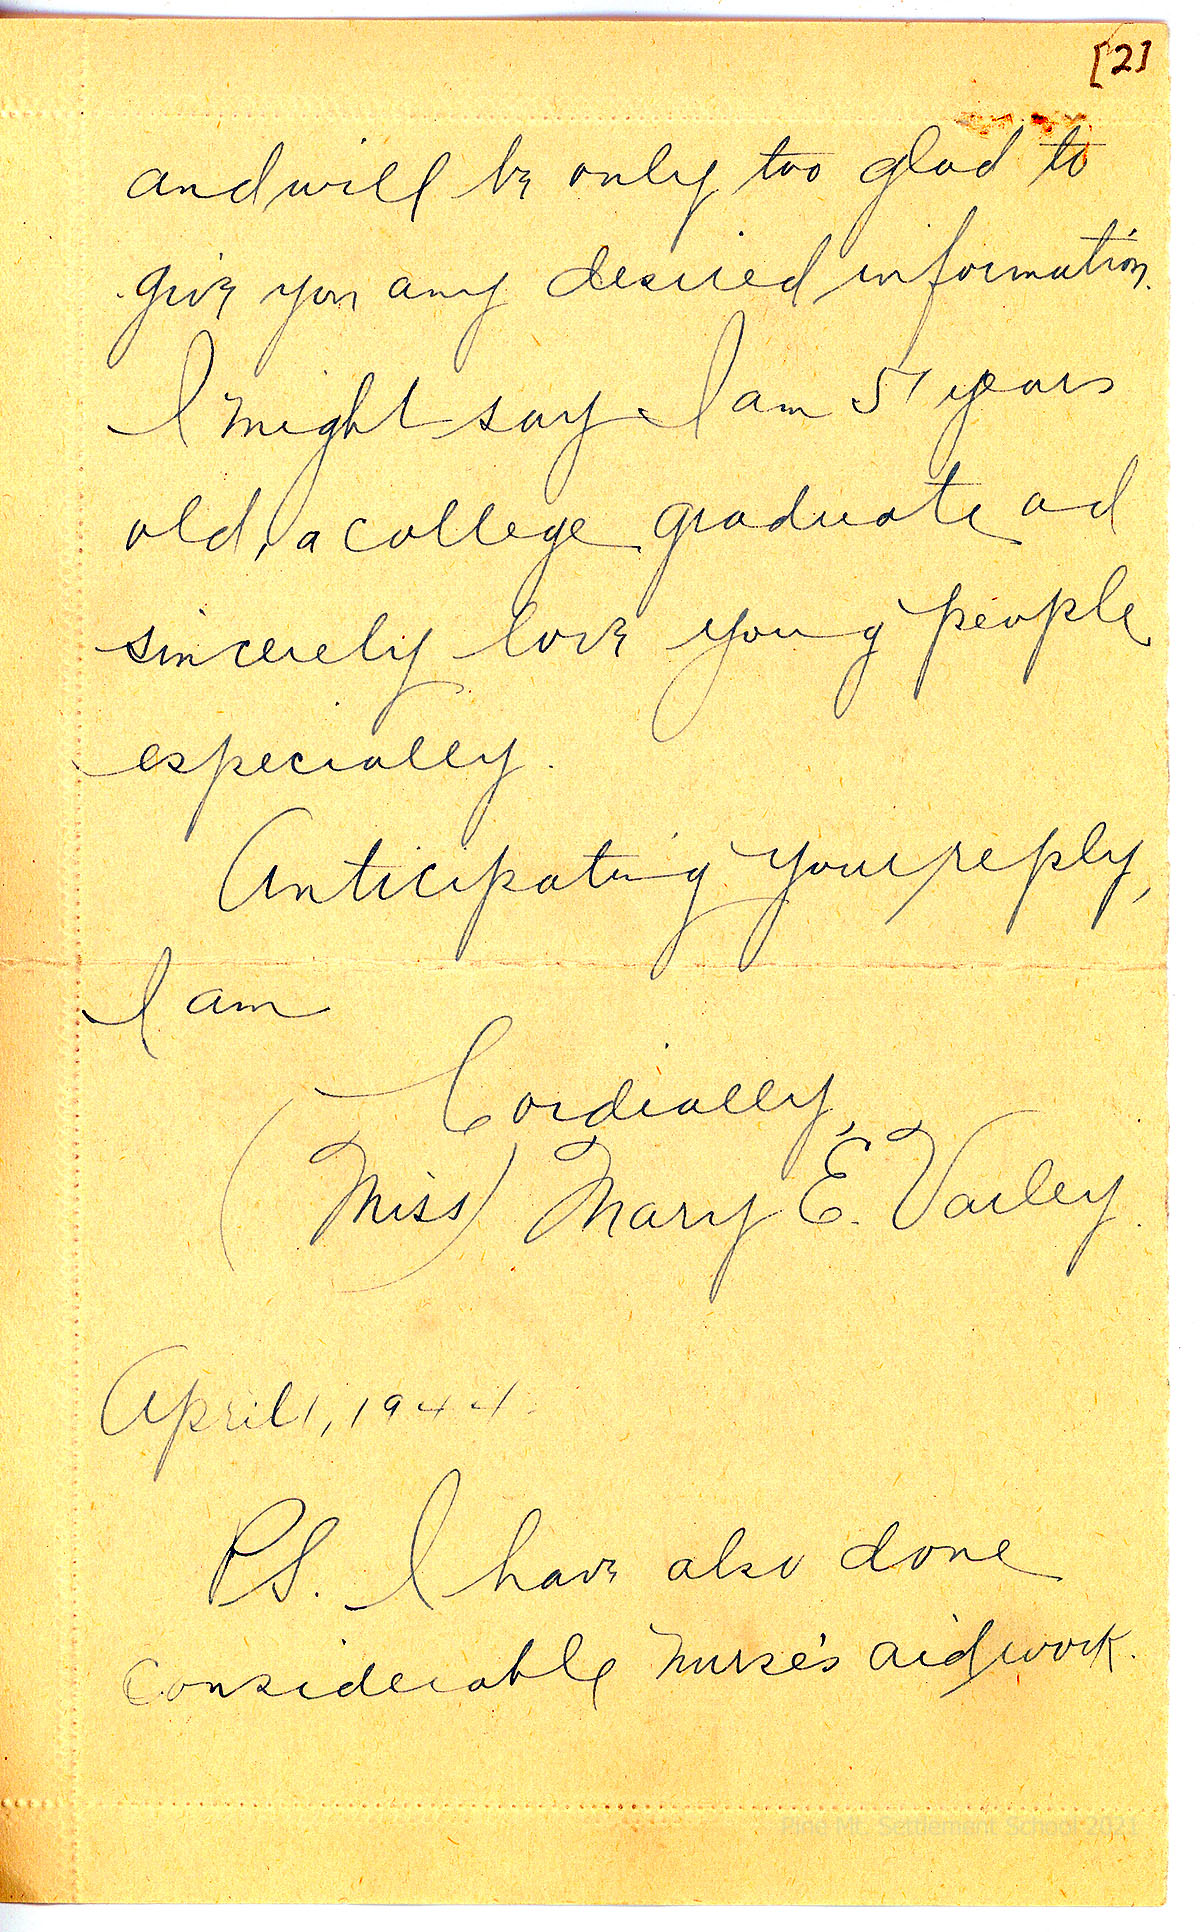 [2]
and will be only too glad to
give you any desired information.
I might say I am 51 years
old, a college graduate ad
sincerely love young people
especially.
Anticipating your reply,
I am
Cordially,
(Miss) Mary E. Varley.
April 1, 1944.
P.S. I have also done
considerable nurse's aid work.
Pine Mt. Settlement School 2021